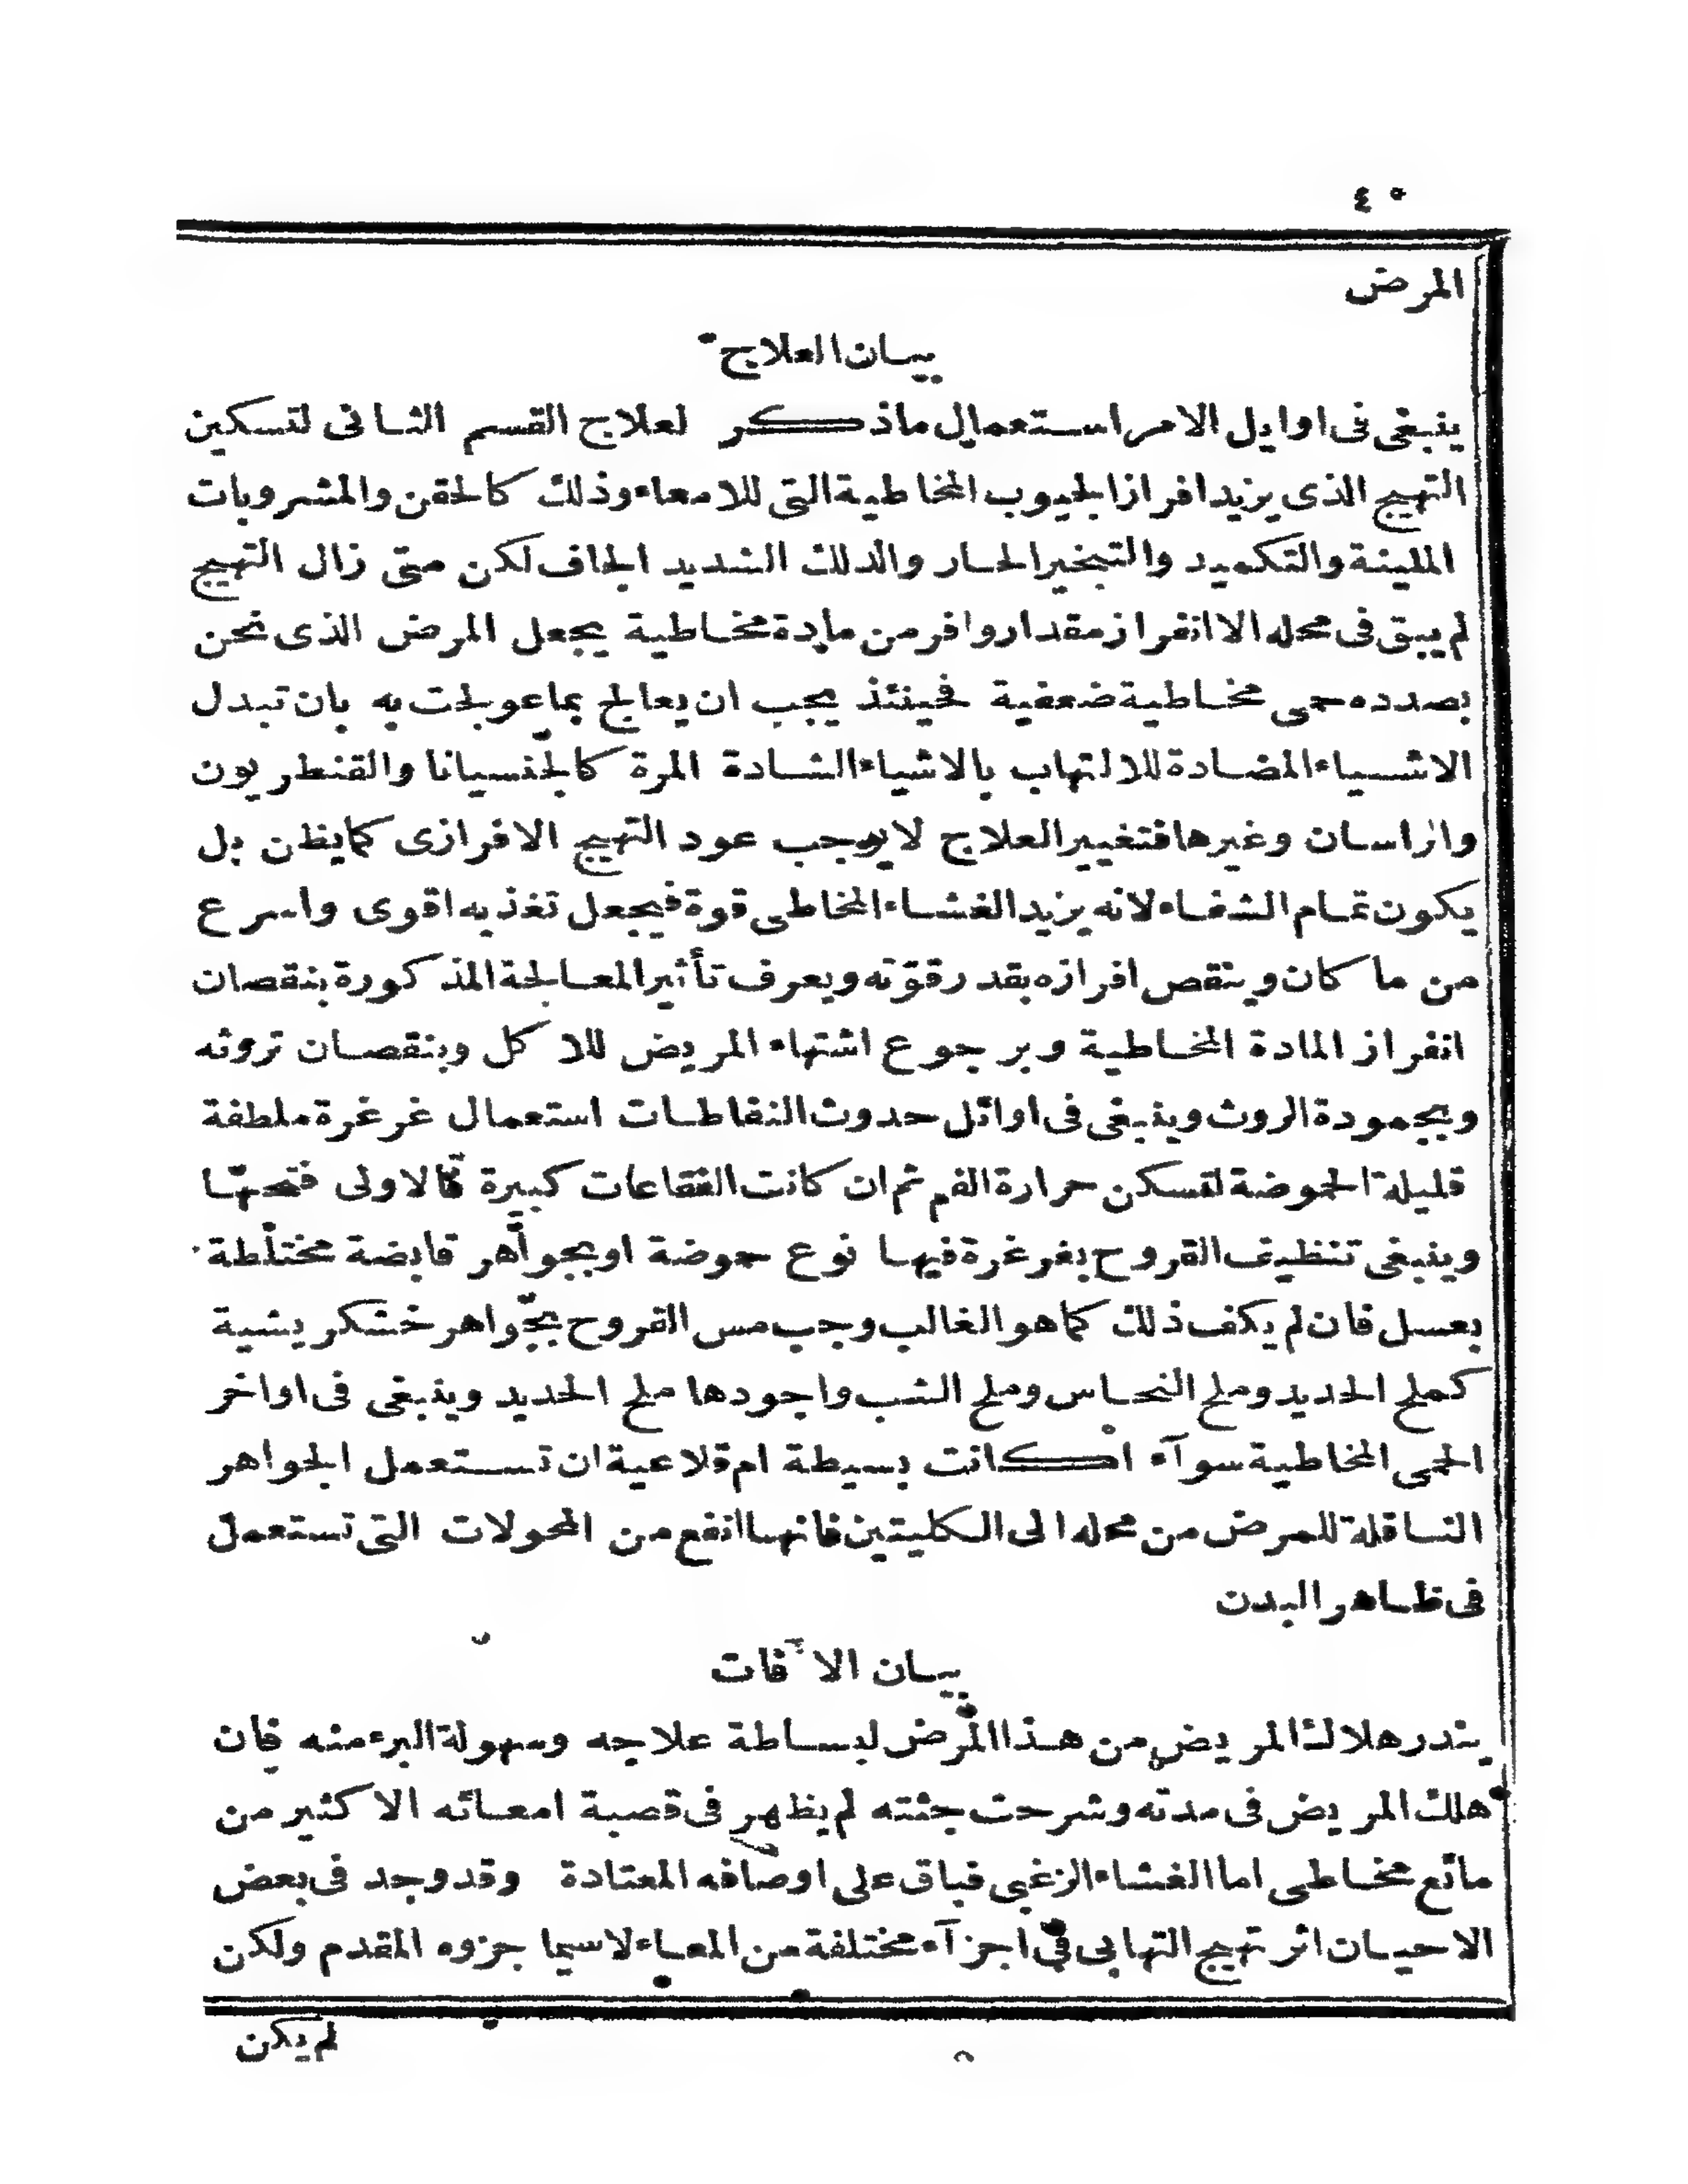 ٤٠
المرض
بيان العلاج
ينبغى فى اوايل الامر استعمال ماذكر لعلاج القسم الثانى لتسكين
التهيج الذى يزيد افراز الجيوب المخاطية التى للامعاء وذلك كالحقن والمشروبات
الملينة والتكميد والتبخير الحار والدلك الشديد الجاف لكن متى زال التهيج
لم يبق فى محله الا انفراز مقدار وافر من مادة مخاطية يجعل المرض الذى نحن
بصدده حمى مخاطية ضعفية فحينئذ يجب ان يعالج بما عولجت به بان تبدل
الاشياء المضادة للالتهاب بالاشياء الشادة المرة كالجنسيانا والقنطريون
والراسان وغيرها فتغيير العلاج لا يوجب عود التهيج الافرازى كما يظن بل
يكون تمام الشفاء لانه يزيد الغشاء المخاطى قوة فيجعل تغذيه اقوى واسرع
من ما كان وينقص افرازه بقدر قوّته ويعرف تأثير المعالجة المذكورة بنقصان
انفراز المادة المخاطية وبرجوع اشتهاء المريض للاكل وبنقصان تروثه
وبجمودة الروث وينبغى فى اوائل حدوث النفاطات استعمال غرغرة ملطفة
قليلة الحموضة لتسكن حرارة الفم ثم ان كانت الفقاعات كبيرة فالاولى فتحها
وينبغى تنظيف القروح بغرغرة فيها نوع حموضة او بجواهر قابضة مختلطة
بعسل فان لم يكف ذلك كما هو الغالب وجب مس القروح بجواهر خشكريشية
كملح الحديد وملح النحاس وملح الشب واجودها ملح الحديد وينبغى فى اواخر
الحمى المخاطية سوآء اكانت بسيطة ام قلاعية ان تستعمل الجواهر
الناقلة للمرض من محله الى الكليتين فانها انفع من المحولات التى تستعمل
فى ظاهر البدن
بيان الآفات
يندر هلاك المريض من هذا المرض لبساطة علاجه وسهولة البرء منه فان
هلك المريض فى مدته وشرحت جثته لم يظهر فى قصبة امعائه الا كثير من
مائع مخاطى اما الغشاء الزغبى فباق على اوصافه المعتادة وقد وجد فى بعض
الاحيان اثر تهيج التهابى فى اجزآء مختلفة من المعاء لاسيما جزوه المقدم ولكن
لم يكن